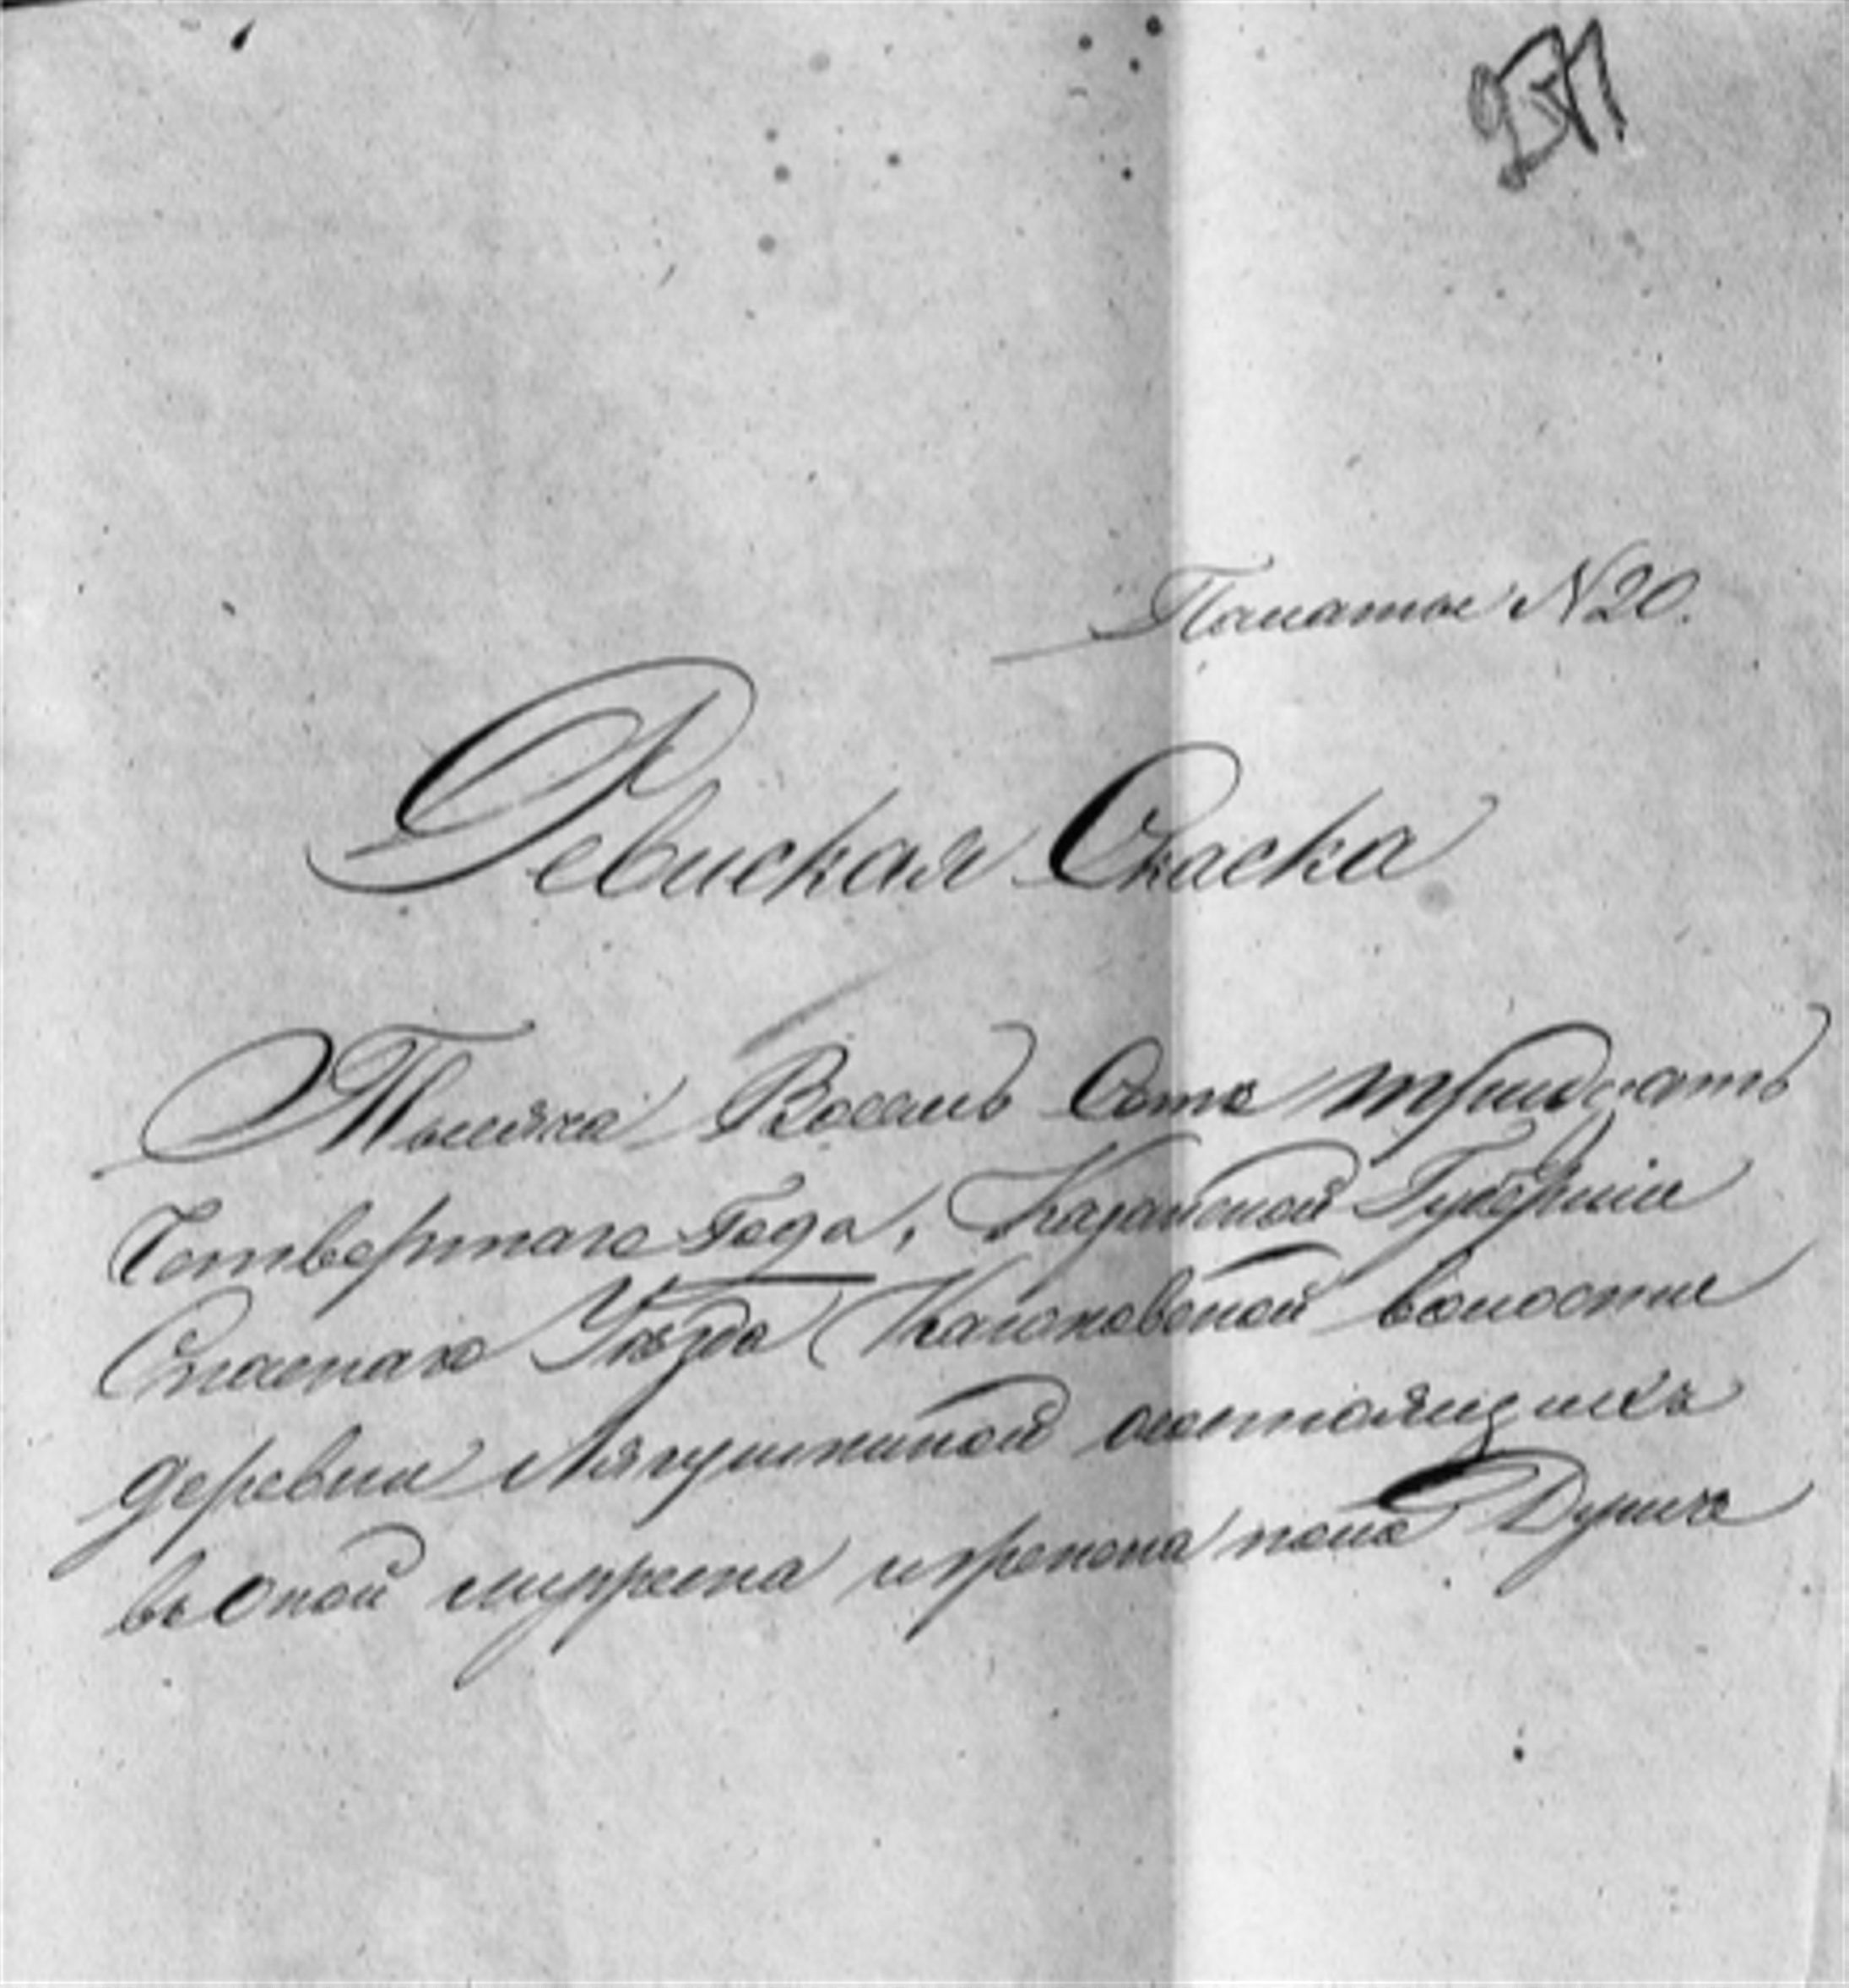 Палаты N 20.
Ревиская Скаска
Тысяча Восемь Сотъ тридцать
Четвертаго Года, Казанской Губерніи
Спаскаго Уѣзда волости
деревни Лягушкиной состоящихъ
въ оной мужеска и женска пола Душъ